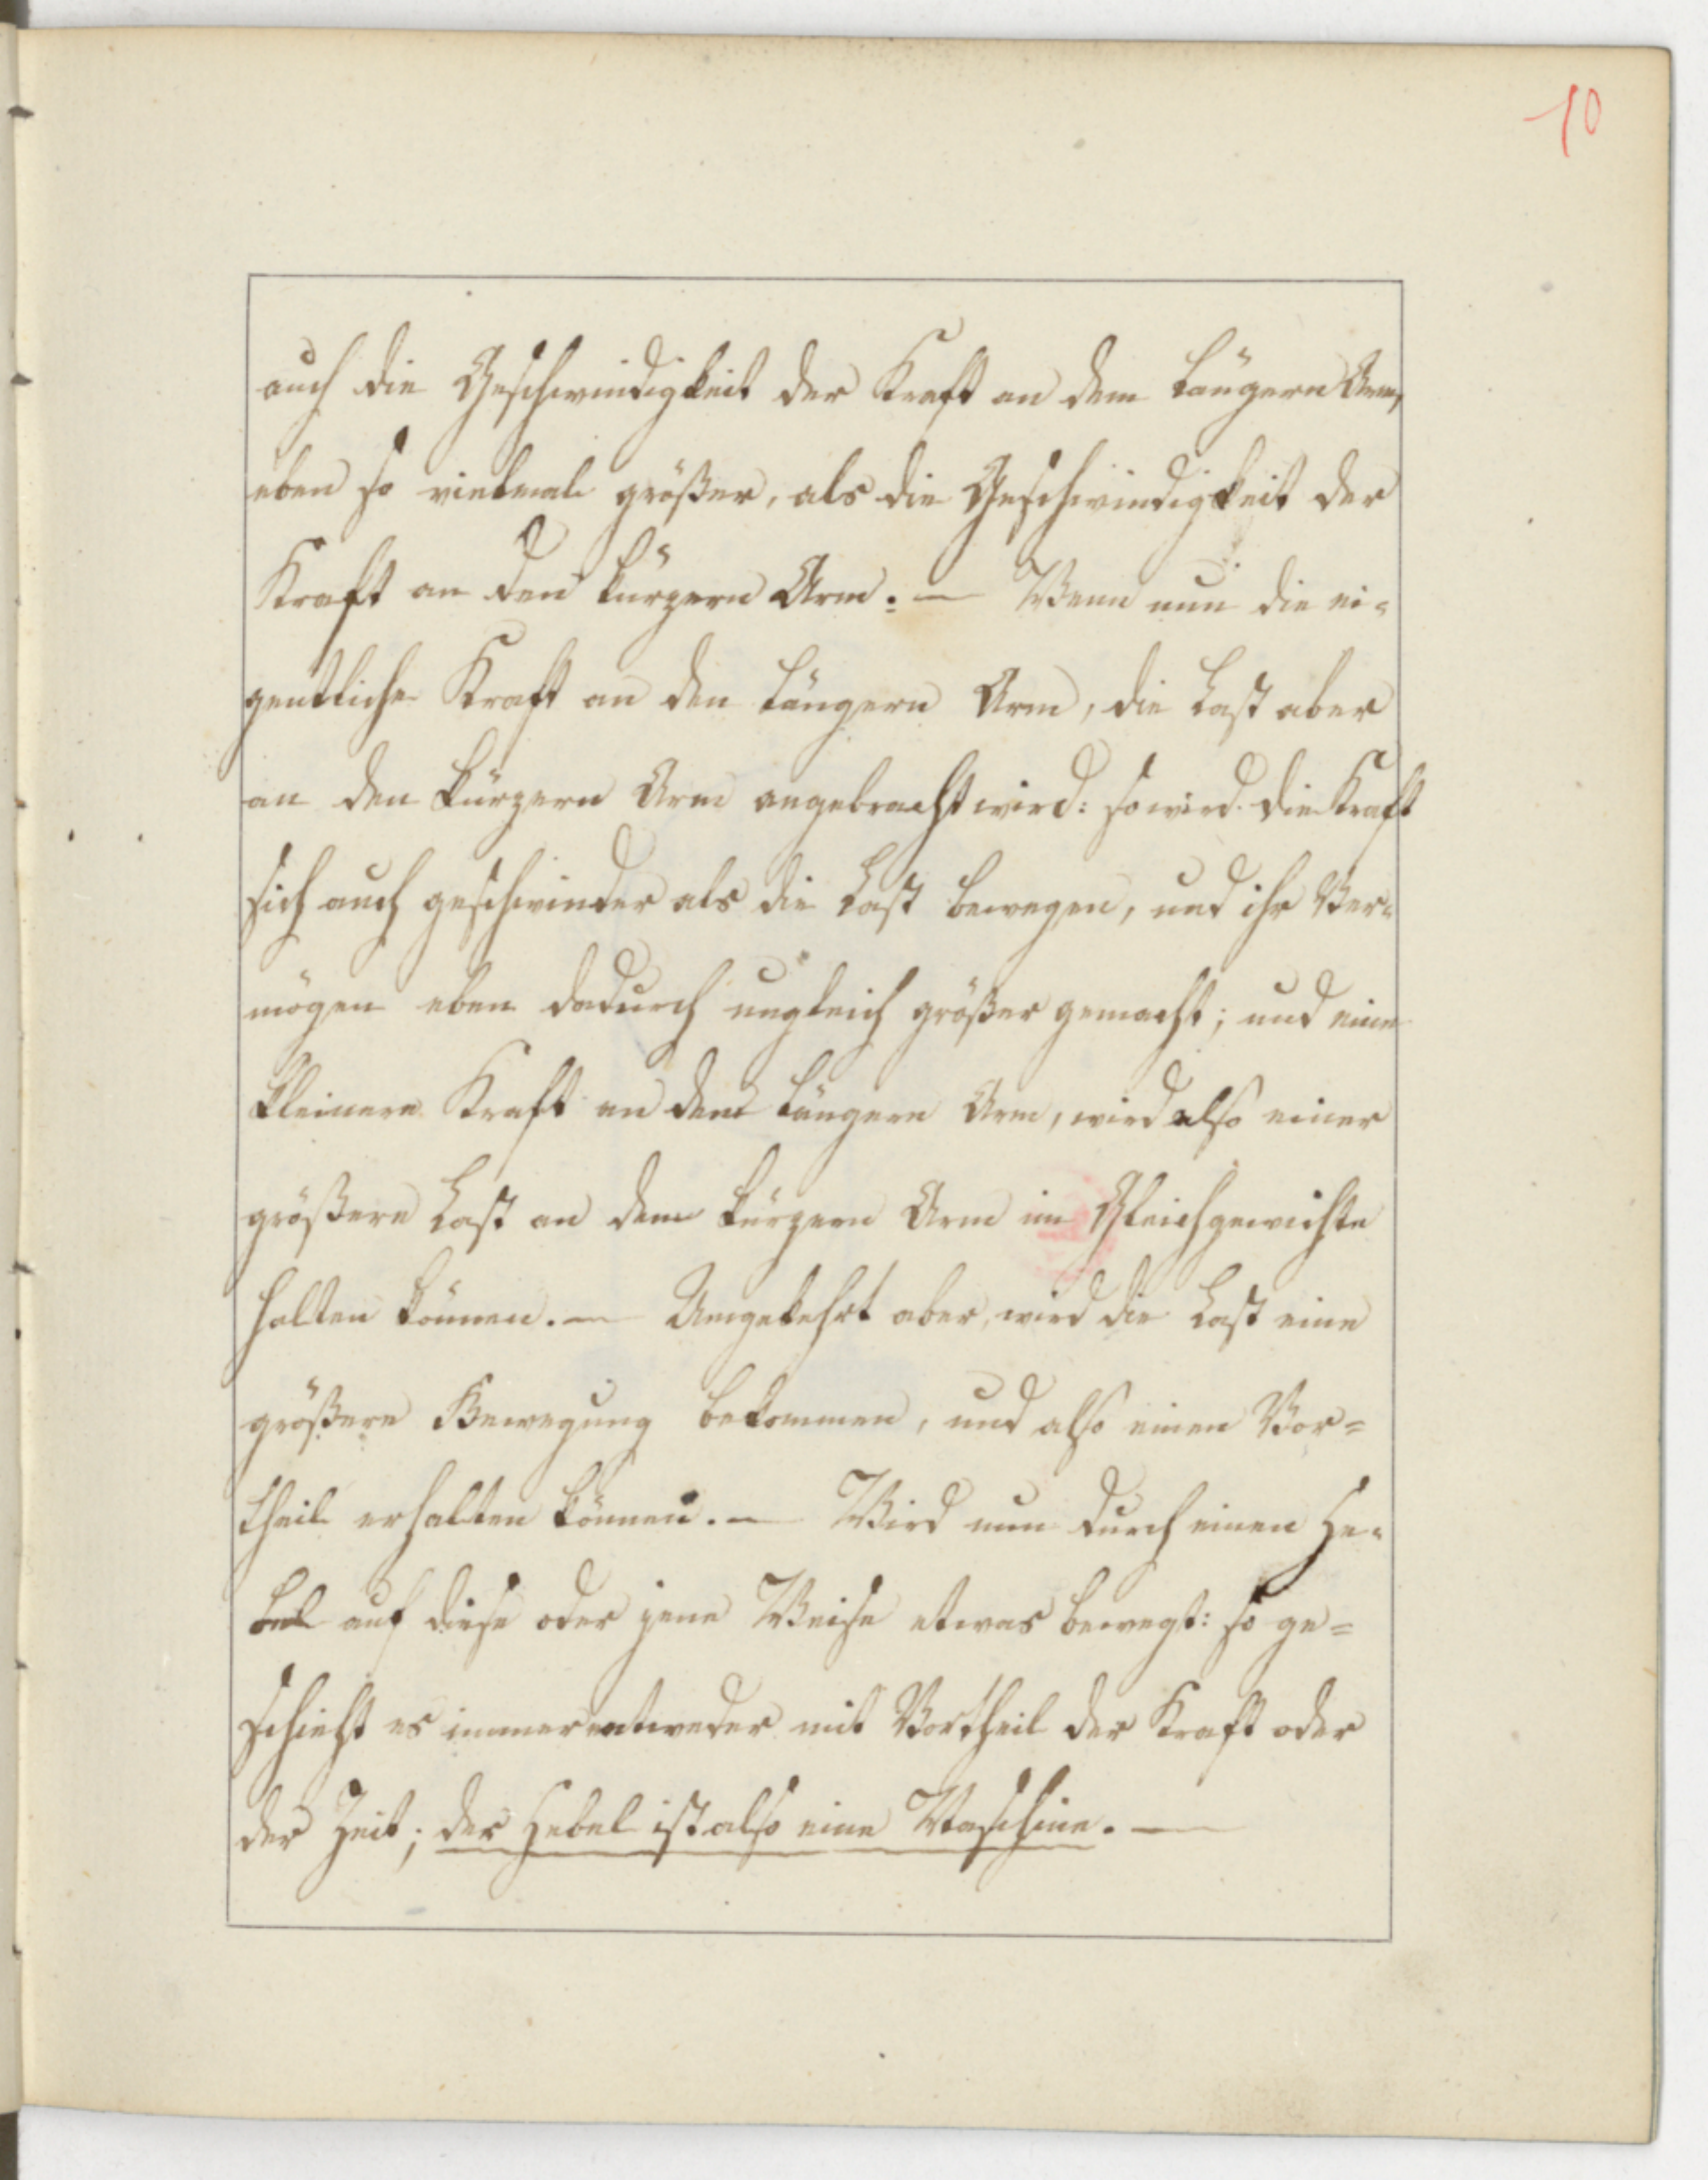 10
auch die Geschwindigkeit der Kraft an dem längern Arm,
eben so vielmal größer, als die Geschwindigkeit der
Kraft an den kürzern Arm. — Wenn nun die ei-
gentliche Kraft an den längern Arm, die Last aber
an den kürzern Arm angebracht wird: so wird die Kraft
sich auch geschwinder als die Last bewegen, und ihr Ver-
mögen eben dadurch ungleich größer gemacht; und eine
kleinere Kraft an dem längern Arm, wird also einer
größern Last an dem kürzern Arm im Gleichgewichte
halten können. — Umgekehrt aber, wird die Last eine
größere Bewegung bekommen, und also einen Vor=
theil erhalten können. — Wird nun durch einen He-
bel auf diese oder jene Weise etwas bewegt: so ge=
schieht es immer entweder mit Vortheil der Kraft oder
der Zeit; der Hebel ist also eine Maschine. —